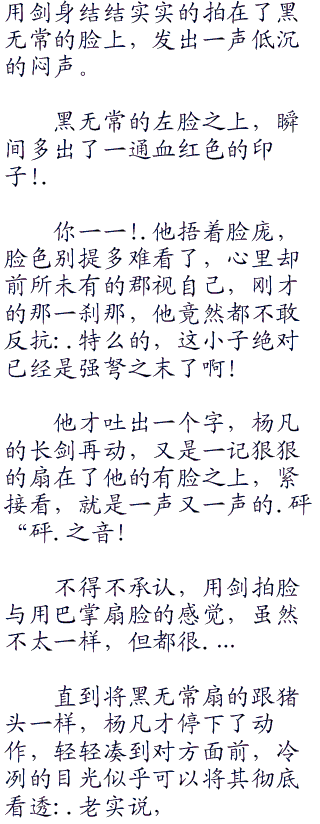 用剑身结结实实的拍在了黑
无常的脸上，发出一声低沉
的闷声。
黑无常的左脸之上，瞬
间多出了一通血红色的印
子!.
你一一!.他捂着脸庞，
脸色别提多难看了，心里却
前所未有的郡视自己，刚才
的那一刹那，他竟然都不敢
反抗:.特么的，这小子绝对
已经是强弩之末了啊！
他才吐出一个字，杨凡
的长剑再动，又是一记狠狠
的扇在了他的有脸之上，紧
接看，就是一声又一声的.砰
“砰.之音！
不得不承认，用剑拍脸
与用巴掌扇脸的感觉，虽然
不太一样，但都很....
直到将黑无常扇的跟猪
头一样，杨凡才停下了动
作，轻轻凑到对方面前，冷
冽的目光似乎可以将其彻底
看透:.老实说，